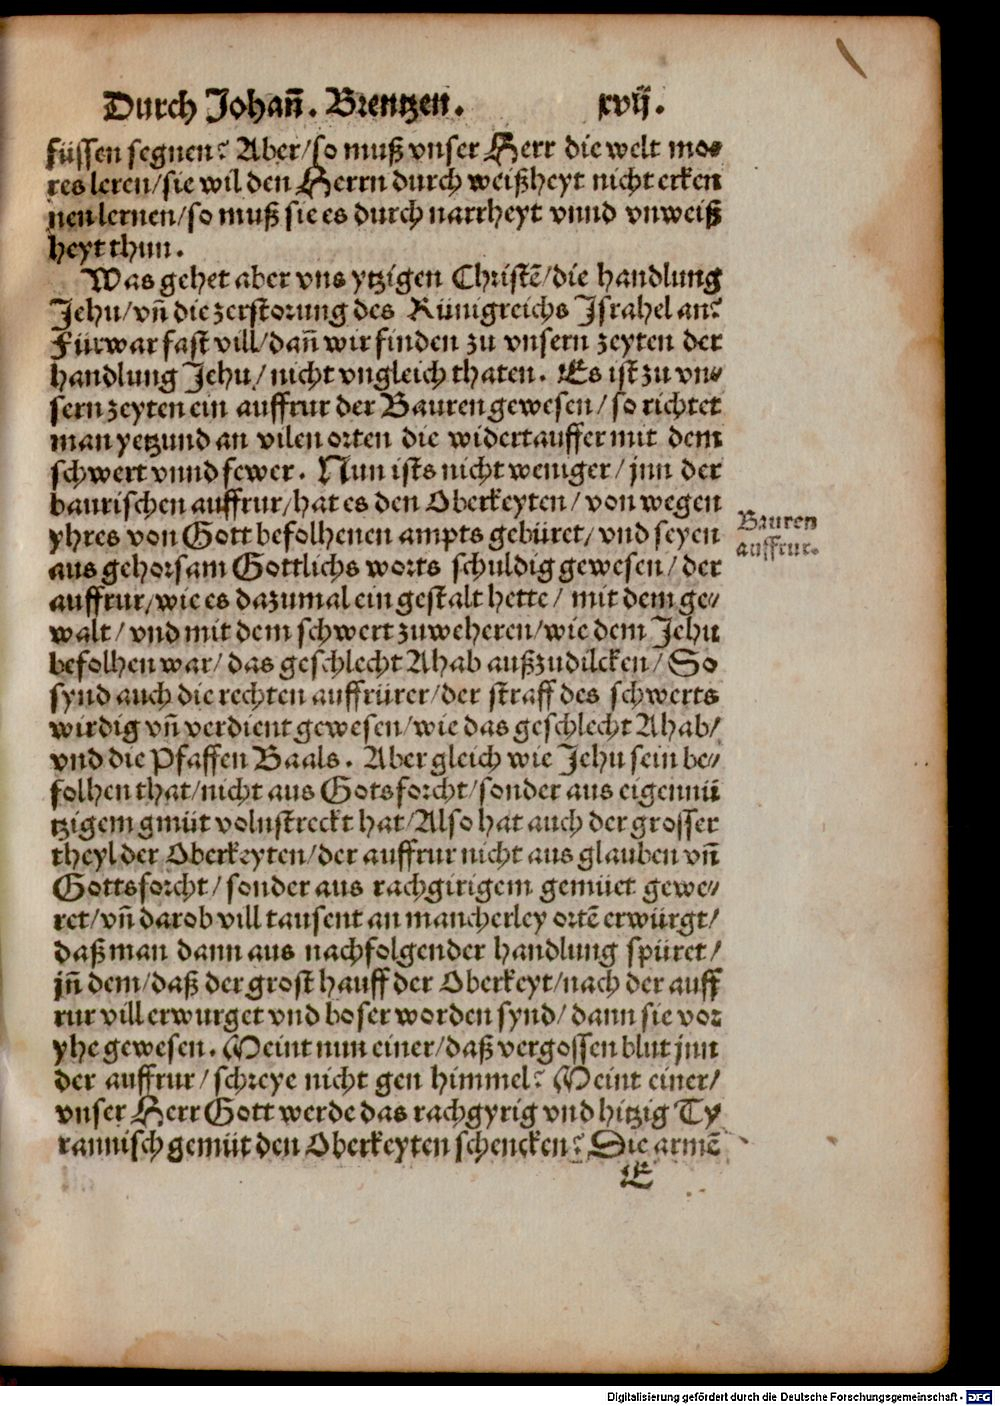 Durch Johañ. Brentzen. xvij.
füssen segnen? Aber/so muß vnser Herr die welt mo⸗
res leren/sie wil den Herrn durch weißheyt nicht erken
nen lernen/so muß sie es durch narrheyt vnnd vnweiß
heyt thun.
Was gehet aber vns ytzigen Christẽ/die handlung
Jehu/vñ die zerstorung des Künigreichs Jsrahel an?
Fürwar fast vill/dañ wir finden zu vnsern zeyten der
handlung Jehu/nicht vngleich thaten. Es ist zu vn⸗
sern zeyten ein auffrur der Bauren gewesen/so richtet
man yetzund an vilen orten die widertauffer mit dem
schwert vnnd fewer. Nun ists nicht weniger/jnn der
baurischen auffrur/hat es den Oberkeyten/von wegen
yhres von Gott befolhenen ampts gebüret/vnd seyen
aus gehorsam Gottlichs worts schuldig gewesen/der
auffrur/wie es dazumal ein gestalt hette/mit dem ge⸗
walt/vnd mit dem schwert zuweheren/wie dem Jehu
befolhen war/das geschlecht Ahab außzudilcken/So
synd auch die rechten auffrürer/der straff des schwerts
wirdig vñ verdient gewesen/wie das geschlecht Ahab/
vnd die Pfaffen Baals. Aber gleich wie Jehu sein be⸗
folhen that/nicht aus Gotsforcht/sonder aus eigennü
tzigem gmüt volnstreckt hat/Also hat auch der grosser
theyl der Oberkeyten/der auffrur nicht aus glauben vñ
Gottsforcht/sonder aus rachgirigem gemüet gewe⸗
ret/vñ darob vill tausent an mancherley ortẽ erwürgt/
daß man dann aus nachfolgender handlung spüret/
jñ dem/daß der grost hauff der Oberkeyt/nach der auff
rur vill erwurget vnd boser worden synd/dann sie vor
yhe gewesen. Meint nun einer/daß vergossen blut jnn
der auffrur/schreye nicht gen himmel? Meint einer/
vnser Herr Gott werde das rachgyrig vnd hitzig Ty
rannisch gemüt den Oberkeyten schencken? Die armẽ
E
Bauren
auffrur.
Digitalisierung gefördert durch die Deutsche Forschungsgemeinschaft - DFG